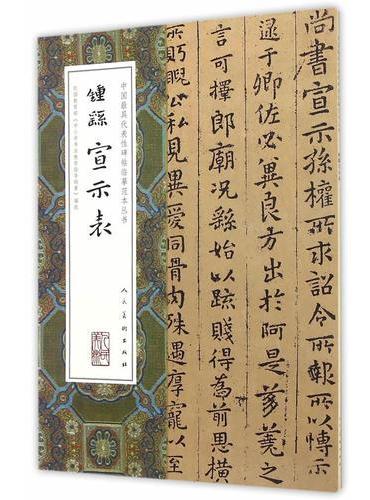 尚書宣示孫權所求詔令所報所以博示
逮于卿佐必冀良方出於阿是芻蕘之
言可擇郎廟况繇始以疏賤得為前恩橫
所睨公私見異愛同骨肉殊遇厚寵以至
中国最具代表性碑帖临摹范本丛书
鍾繇 宣示表
人民美術出版社